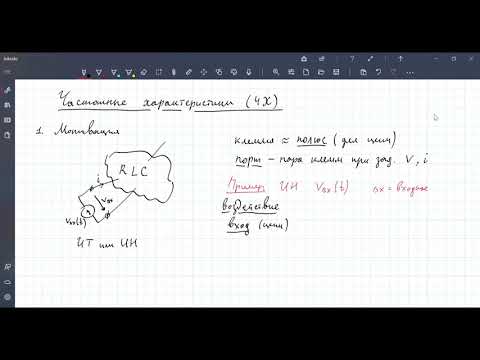 Частотные характеристики (ЧХ)
1. Мотивация
RLC
i
Vвх
Vвх(t)
ИТ или ИН
клемма ≈ полюс (для цепи)
порт – пара клемм при зад. V, i
Пример ИН Vвх(t) вх = входное
воздействие
вход (цепи)